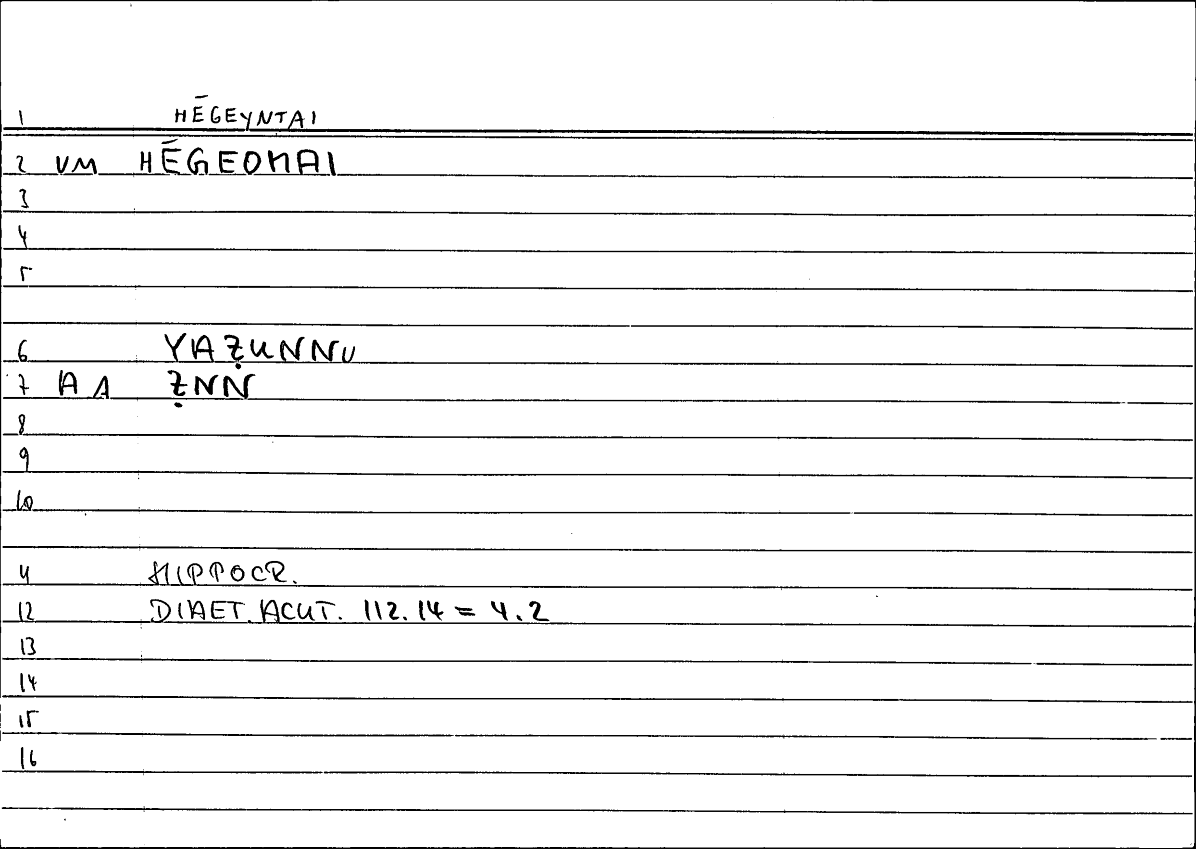 1 HĒGEYNTAI
2 VM HĒGEOMAI
3
4
5
6 YAẒUNNU
7 AA ẒNN
8
9
10
11 HIPPOCR.
12 DIAET. ACUT. 112.14 = 4.2
13
14
15
16